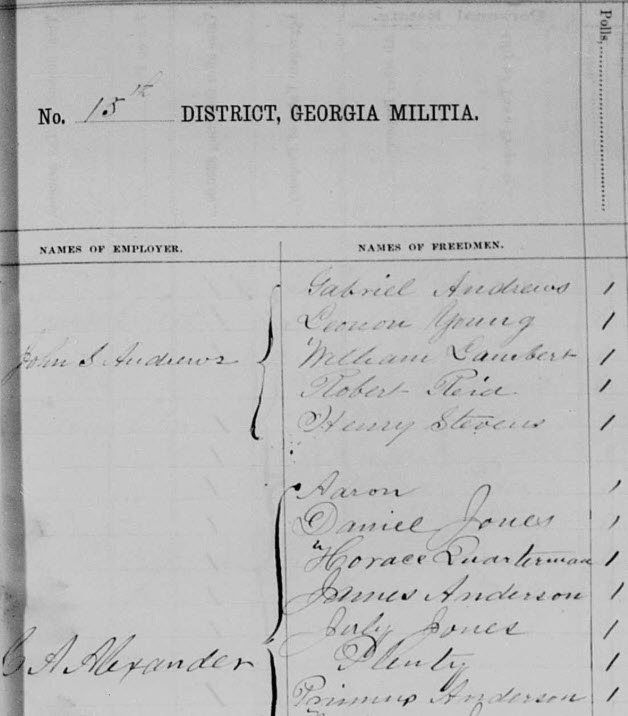 Polls,
No. 15th DISTRICT, GEORGIA MILITIA.
NAMES OF EMPLOYER. NAMES OF FREEDMEN.
Gabriel Andrews 1
Leonon Young 1
John S Andrews William Lambert 1
Robert Reid 1
Henry Stevens 1
Aaron 1
Daniel Jones 1
" Horace Quarterman 1
James Anderson 1
July Jones 1
C A Alexander Plenty 1
Primus Anderson 1